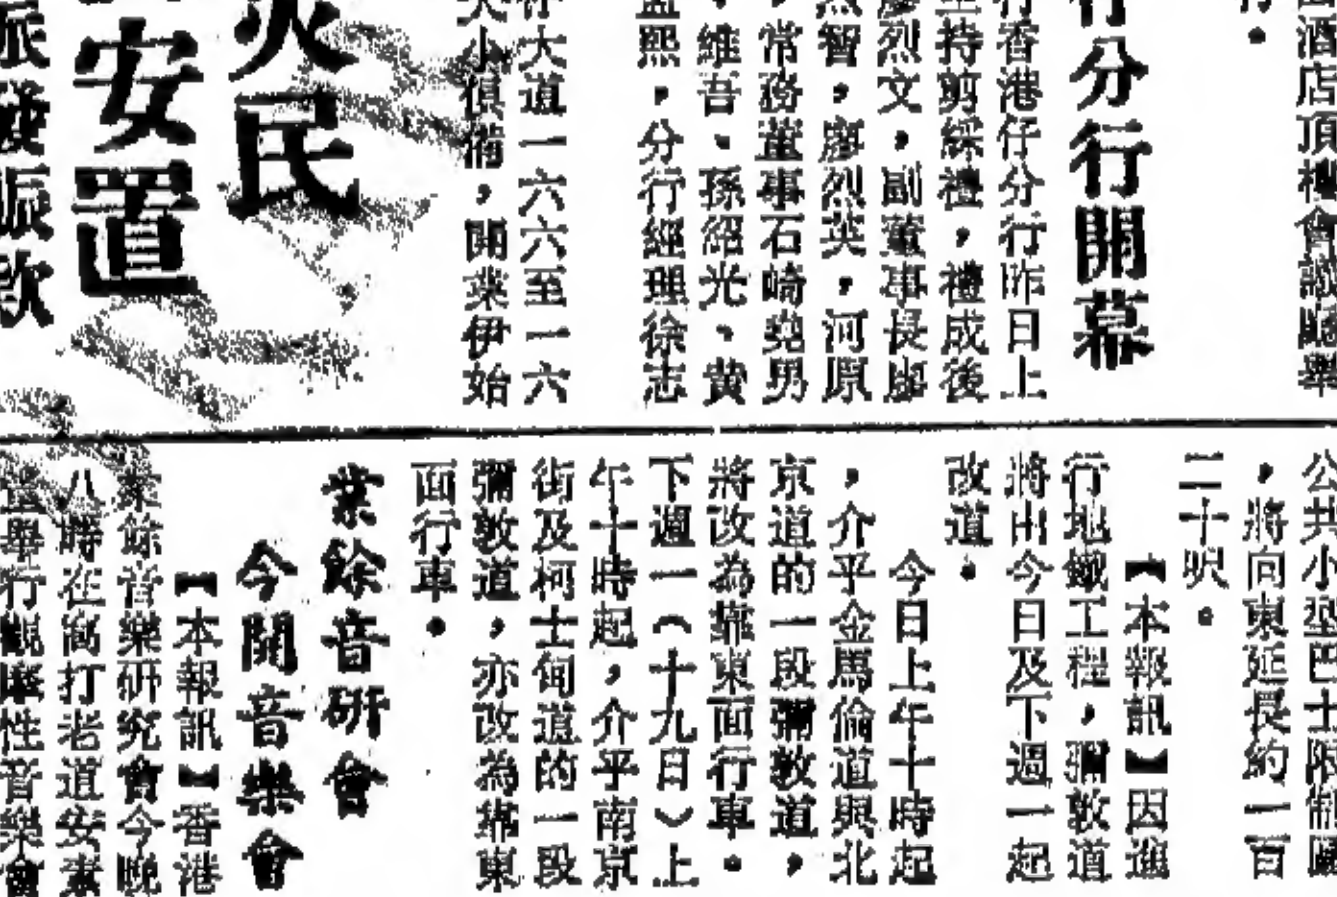 酒店頂樓會議廳舉
行。
行分行開幕
行香港仔分行昨日上
主持剪綵禮，禮成後
廖烈文，副董事長廖
烈智，廖烈英，河原
，常務董事石崎堯男
、維吾、孫紹光、黄
孟熙，分行經理徐志
林大道一六六至一六
大小俱備，開業伊始
災民
安置
派發賑款
公共小型巴士限制區
，將向東延長約一百
二十呎。
【本報訊】因進
行地鐵工程，彌敦道
將由今日及下週一起
改道。
今日上午十時起
，介乎金馬倫道與北
京道的一段彌敦道，
將改為靠東面行車。
下週一（十九日）上
午十時起，介乎南京
街及柯士甸道的一段
彌敦道，亦改為靠東
面行車。
業餘音研會
今開音樂會
【本報訊】香港
業餘音樂研究會今晚
八時在窩打老道安素
堂舉行觀摩性音樂會